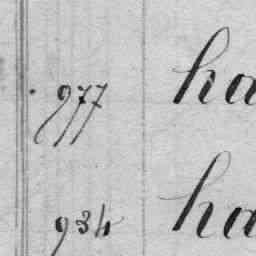 977 ha
934 ha